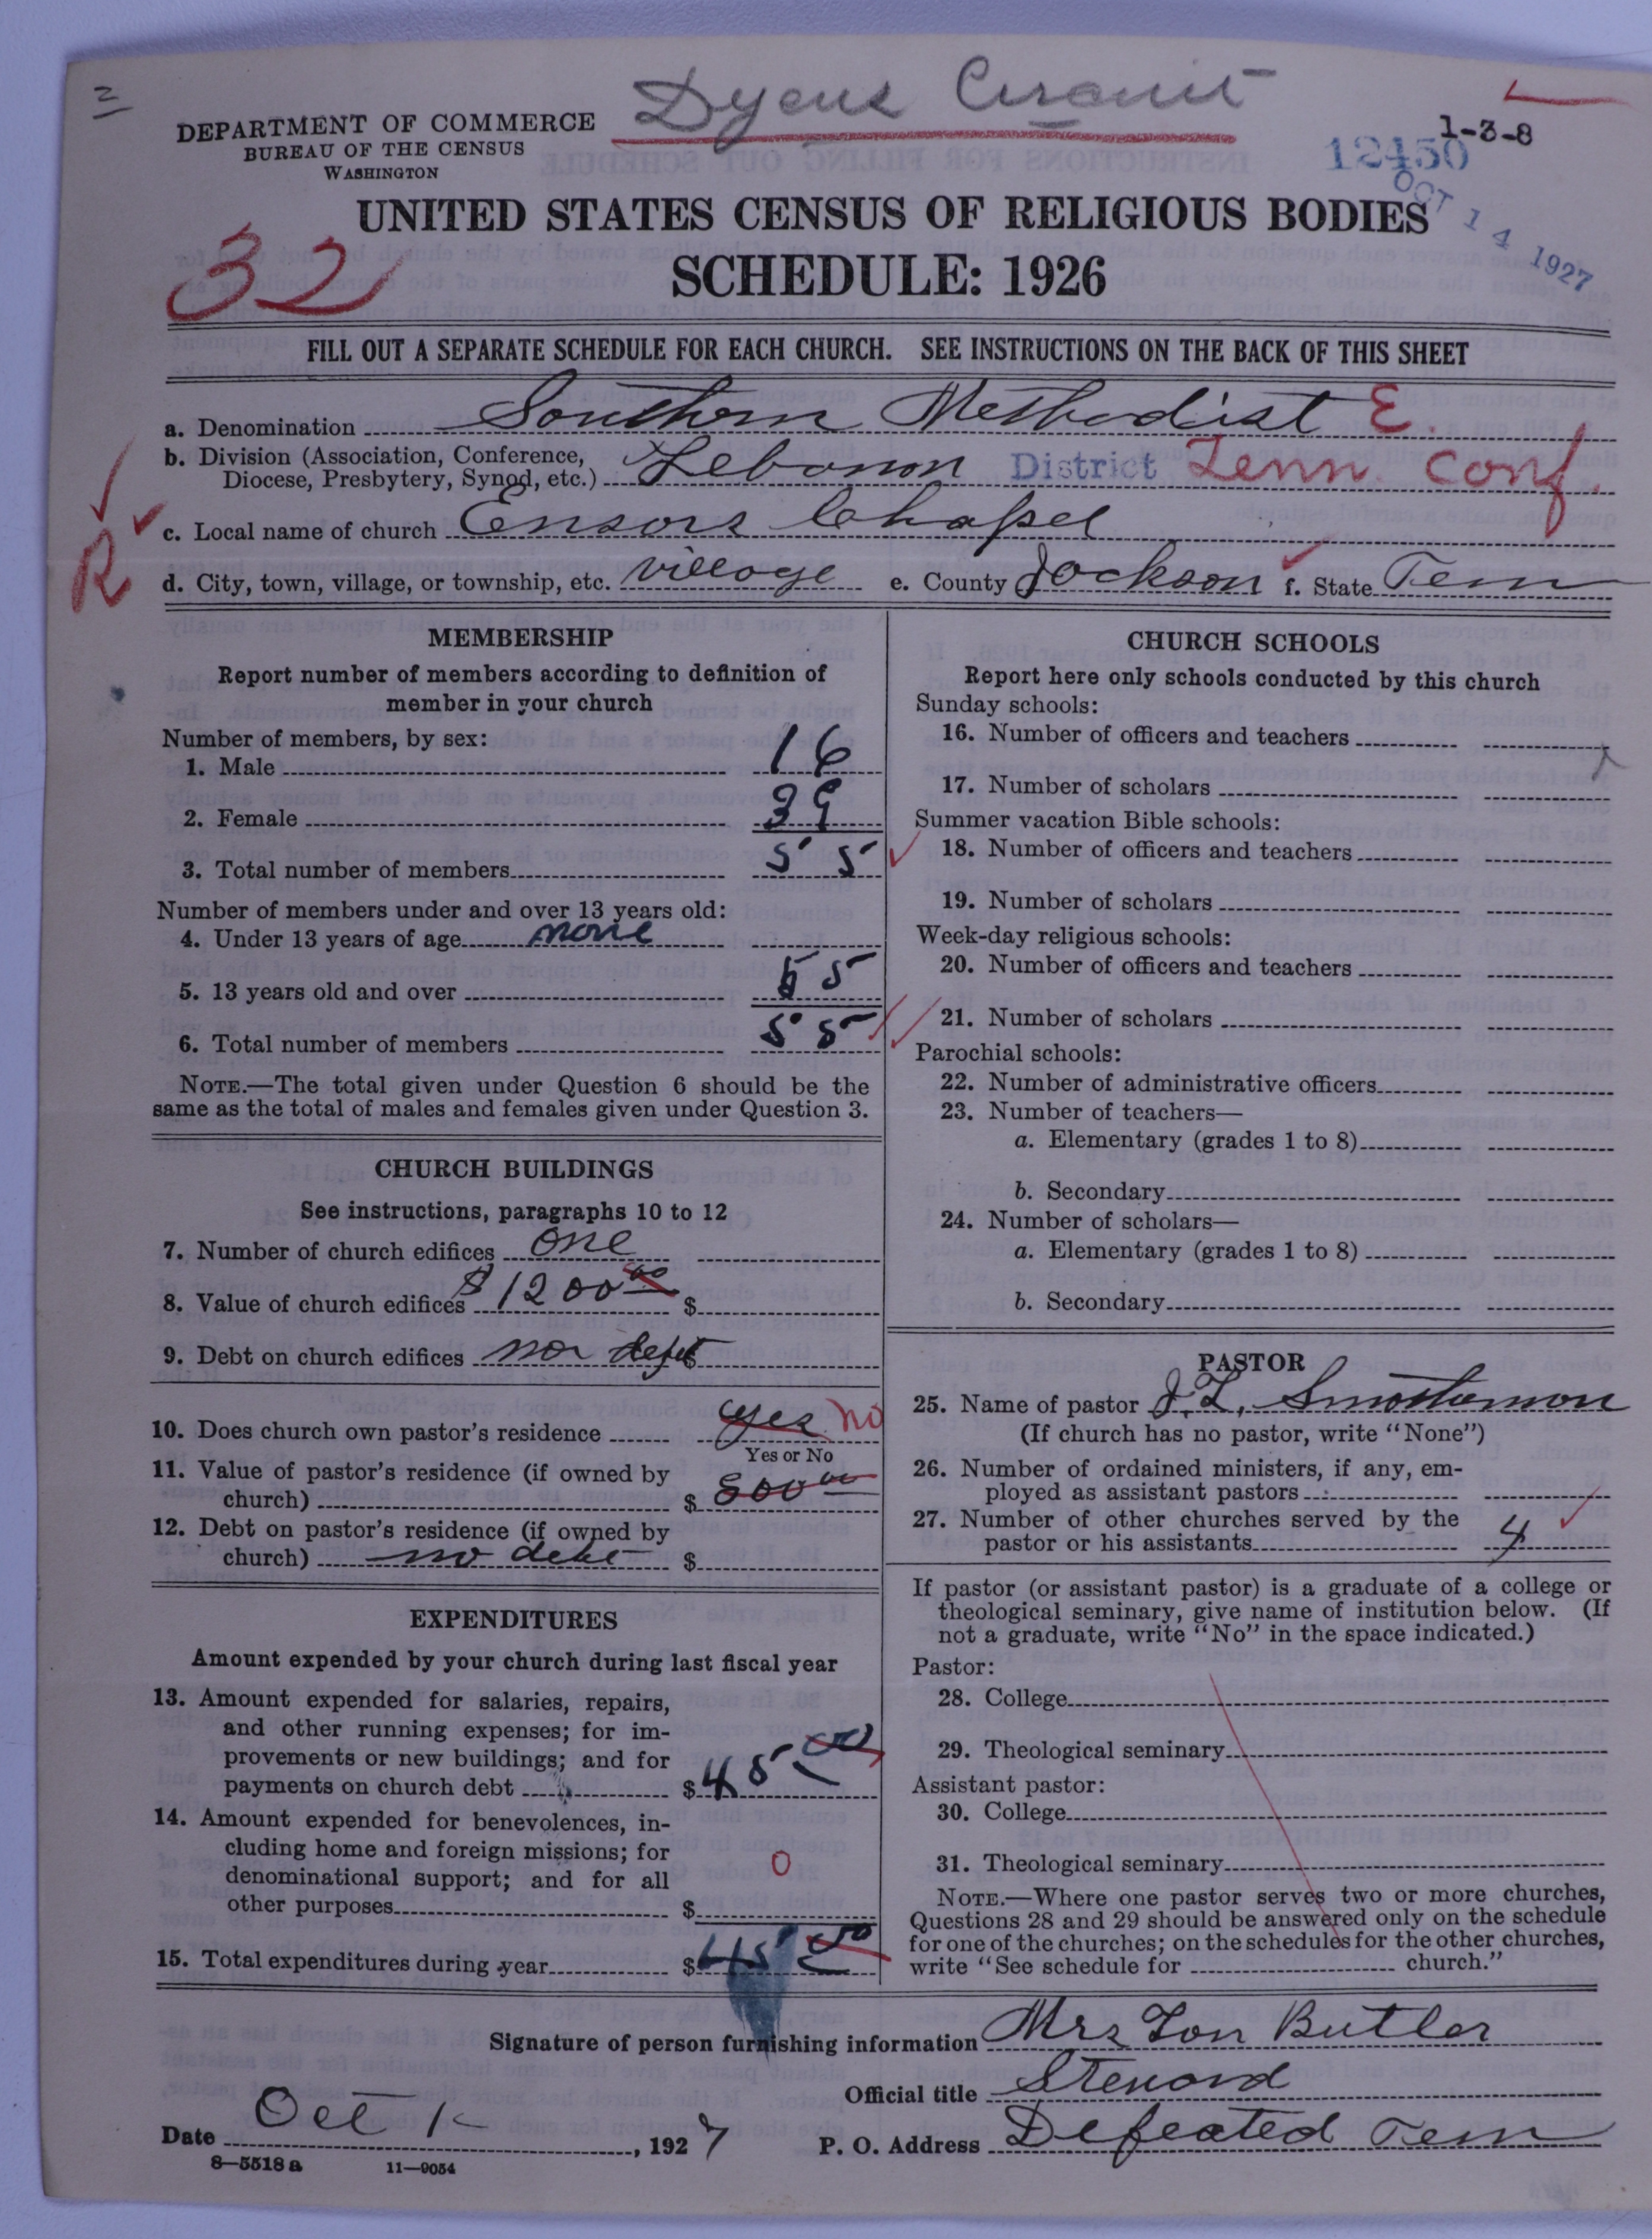 2
Dyers Circuit
DEPARTMENT OF COMMERCE
BUREAU OF THE CENSUS
WASHINGTON
1-3-8
12450
OCT 14 1927
UNITED STATES CENSUS OF RELIGIOUS BODIES
32
SCHEDULE: 1926
FILL OUT A SEPARATE SCHEDULE FOR EACH CHURCH. SEE INSTRUCTIONS ON THE BACK OF THIS SHEET
a. Denomination Southern Methodist E.
b. Division (Association, Conference, Diocese, Presbytery, Synod, etc.) Lebanon District Tenn. Conf.
R
c. Local name of church Ensors Chapel
d. City, town, village, or township, etc. village e. County Jackson f. State Tenn
MEMBERSHIP
Report number of members according to definition of
member in your church
Number of members, by sex:
1. Male 16
2. Female 39
3. Total number of members 55
Number of members under and over 13 years old:
4. Under 13 years of age none
5. 13 years old and over 55
6. Total number of members 55
NOTE.—The total given under Question 6 should be the
same as the total of males and females given under Question 3.
CHURCH BUILDINGS
See instructions, paragraphs 10 to 12
7. Number of church edifices one
8. Value of church edifices $1200 00 $
9. Debt on church edifices non debt $
10. Does church own pastor's residence yes no
Yes or No
11. Value of pastor's residence (if owned by
church) $ 800 00
12. Debt on pastor's residence (if owned by
church) no debt $
EXPENDITURES
Amount expended by your church during last fiscal year
13. Amount expended for salaries, repairs,
and other running expenses; for im-
provements or new buildings; and for
payments on church debt $45 00
14. Amount expended for benevolences, in-
cluding home and foreign missions; for
denominational support; and for all
other purposes $ 0
15. Total expenditures during year $45 00
CHURCH SCHOOLS
Report here only schools conducted by this church
Sunday schools:
16. Number of officers and teachers
17. Number of scholars
Summer vacation Bible schools:
18. Number of officers and teachers
19. Number of scholars
Week-day religious schools:
20. Number of officers and teachers
21. Number of scholars
Parochial schools:
22. Number of administrative officers
23. Number of teachers—
a. Elementary (grades 1 to 8)
b. Secondary
24. Number of scholars—
a. Elementary (grades 1 to 8)
b. Secondary
PASTOR
25. Name of pastor J. L. Smotherman
(If church has no pastor, write "None")
26. Number of ordained ministers, if any, em-
ployed as assistant pastors
27. Number of other churches served by the
pastor or his assistants 4
If pastor (or assistant pastor) is a graduate of a college or
theological seminary, give name of institution below. (If
not a graduate, write "No" in the space indicated.)
Pastor:
28. College
29. Theological seminary
Assistant pastor:
30. College
31. Theological seminary
NOTE.—Where one pastor serves two or more churches,
Questions 28 and 29 should be answered only on the schedule
for one of the churches; on the schedules for the other churches,
write "See schedule for church."
Signature of person furnishing information Mrs Ton Butler
Official title Steward
Date Oct 1, 1927 P. O. Address Defeated Tenn
8—5518 a 11—9054